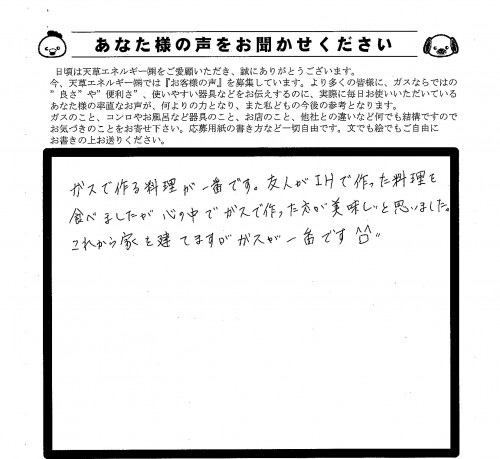 あなた様の声をお聞かせください
日頃は天草エネルギー㈱をご愛顧いただき、誠にありがとうございます。
今、天草エネルギー㈱では『お客様の声』を募集しています。より多くの皆様に、ガスならではの
"良さ"や"便利さ"、使いやすい器具などをお伝えするのに、実際に毎日お使いいただいている
あなた様の率直なお声が、何よりの力となり、また私どもの今後の参考となります。
ガスのこと、コンロやお風呂など器具のこと、お店のこと、他社との違いなど何でも結構ですので
お気づきのことをお寄せ下さい。応募用紙の書き方など一切自由です。文でも絵でもご自由に
お書きの上お送りください。
ガスで作る料理が一番です。友人がIHで作った料理を
食べましたが心の中でガスで作った方が美味しいと思いました。
これから家を建てますがガスが一番です^^